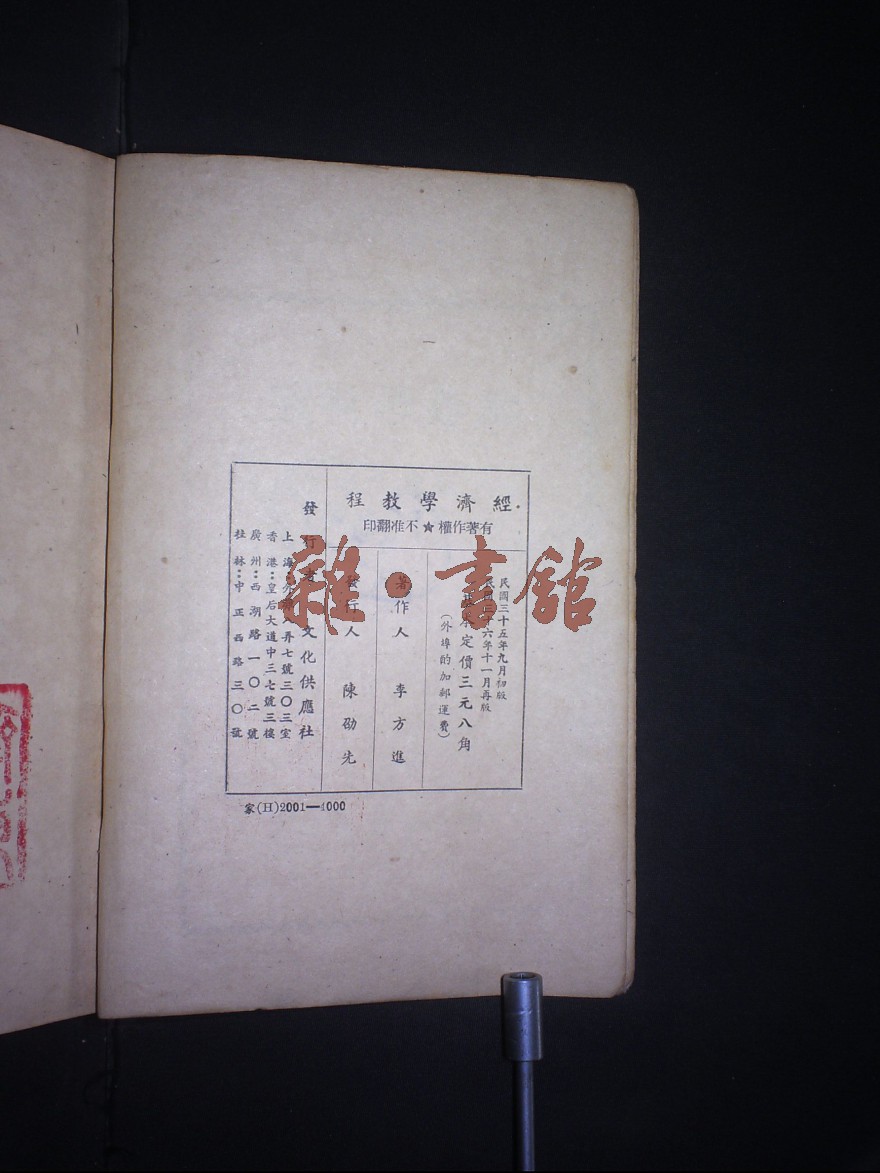 經濟學教程
有著作權★不准翻印
民國三十五年九月初版
六年十一月再版
定價三元八角
(外埠酌加郵運費)
著作人 李方進
發行人 陳劭先
發行者 文化供應社
上海:弄七號三〇三室
香港:皇后大道中三七號三樓
廣州:西湖路一〇二號
桂林:中正西路三〇號
家(H)2001—4000
雜·書館